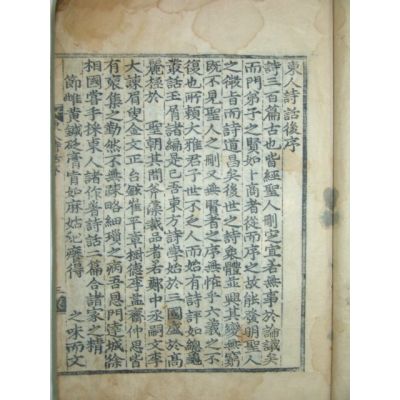 東人詩話後序
詩三百篇古也皆經聖人刪定宜若無事於論議矣
而門弟子之賢如卜商者從而序之故能發明聖人
之微旨而詩道昌矣後世之詩衆體並興其變無窮
既不見聖人之刪又無賢者之序無恠乎六義之不
復也所賴大雅君子世不乏人而始有詩評如總龜
叢話玉屑諸編是已吾東方詩學始於三國盛於高
麗極於 聖朝其間斧藻裁品者若鄭中丞嗣文李
大諫眉叟金文正台鉉崔平章樹德李益齋仲思皆
有裒集之勤然不無疎略細瑣之病吾恩門達城徐
相國嘗手採東人諸作著詩話二篇合諸家之精
節雌黃鍼砭膏肓如麻姑爬癢得 之味而文